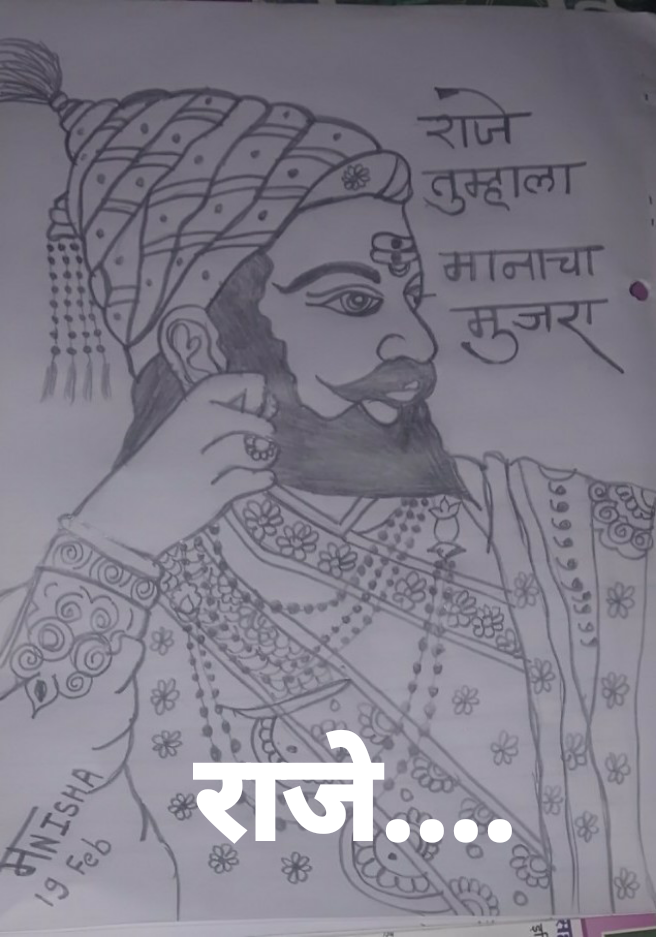 राजे
तुम्हाला
मानाचा
मुजरा
राजे....
मNISHA
19 Feb